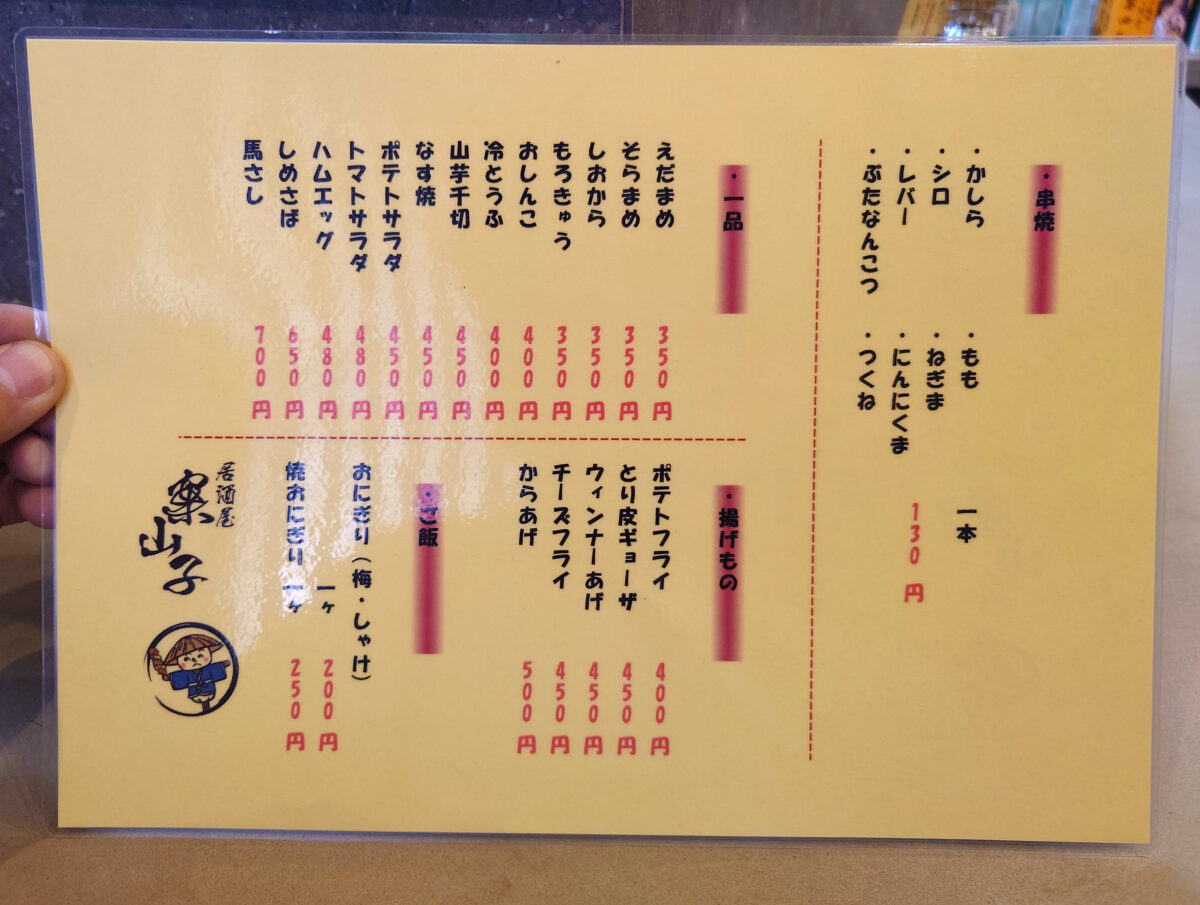 ・串焼
・かしら
・シロ
・レバー
・ぶたなんこつ
・もも
・ねぎま
・にんにくま
・つくね
一本
130円
・一品
えだまめ 350円
そらまめ 350円
しおから 350円
もろきゅう 350円
おしんこ 400円
冷とうふ 400円
山芋千切 450円
なす焼 450円
ポテトサラダ 450円
トマトサラダ 480円
ハムエッグ 480円
しめさば 650円
馬さし 700円
・揚げもの
ポテトフライ 400円
とり皮ギョーザ 450円
ウィンナーあげ 450円
チーズフライ 450円
からあげ 500円
・ご飯
おにぎり（梅・しゃけ）
一ヶ 200円
焼おにぎり 一ヶ 250円
居酒屋
楽山子